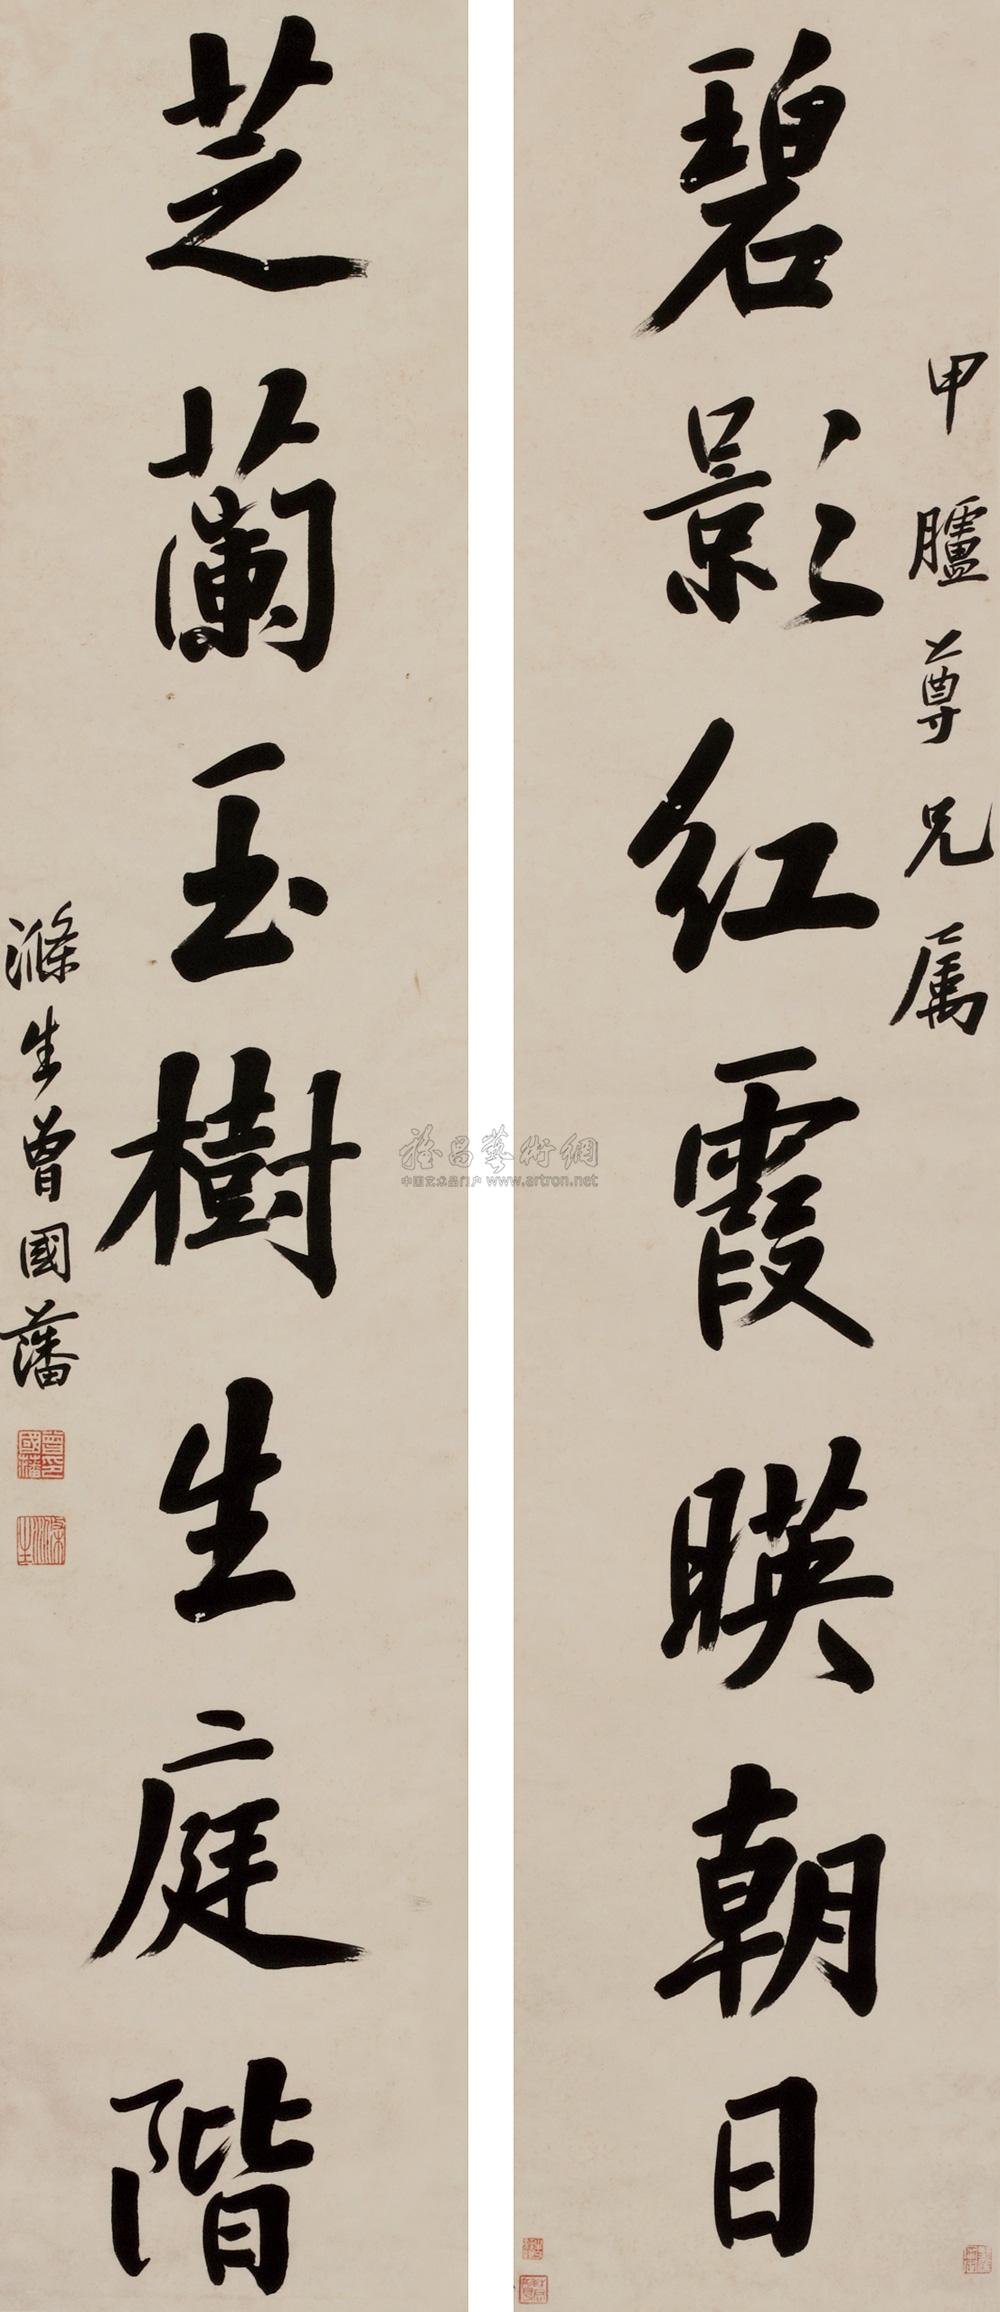 甲臚尊兄属
碧影红霞暎朝日
芝蘭玉樹生庭階
滌生曾國藩
曾國藩印
滌生
雅昌藝術網
中国艺术品门户 www.artron.net